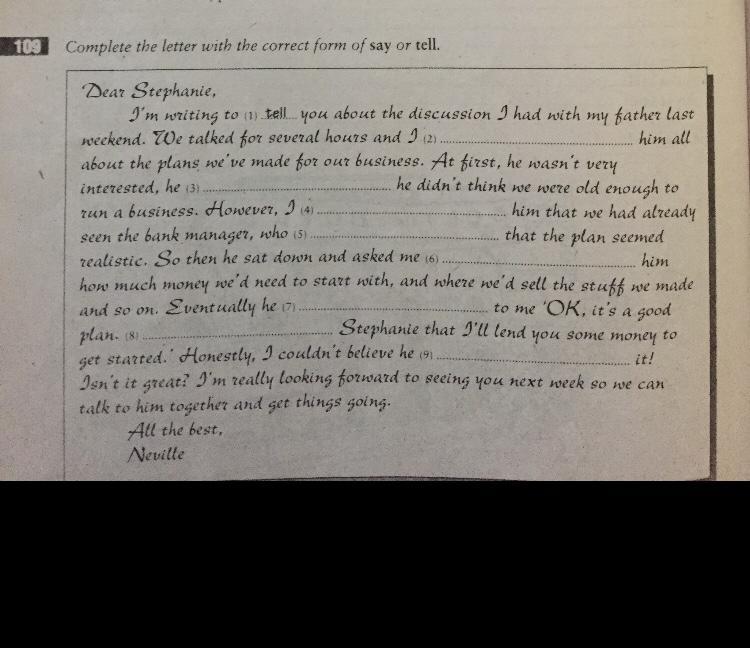 109 Complete the letter with the correct form of say or tell.
Dear Stephanie,
I'm writing to (1) ..tell.... you about the discussion I had with my father last
weekend. We talked for several hours and I (2) ........................ him all
about the plans we've made for our business. At first, he wasn't very
interested, he (3) ........................ he didn't think we were old enough to
run a business. However, I (4) ........................ him that we had already
seen the bank manager, who (5) ........................ that the plan seemed
realistic. So then he sat down and asked me (6) ........................ him
how much money we'd need to start with, and where we'd sell the stuff we made
and so on. Eventually he (7) ........................ to me 'OK, it's a good
plan. (8) ........................ Stephanie that I'll lend you some money to
get started.' Honestly, I couldn't believe he (9) ........................ it!
Isn't it great? I'm really looking forward to seeing you next week so we can
talk to him together and get things going.
All the best,
Neville